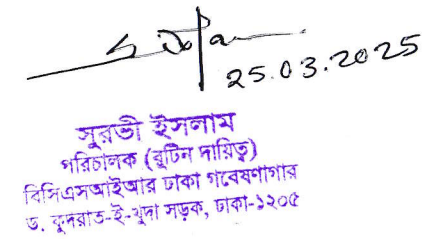 25.03.2025
সুরভী ইসলাম
পরিচালক (রুটিন দায়িত্ব)
বিসিএসআইআর ঢাকা গবেষণাগার
ড. কুদরাত-ই-খুদা সড়ক, ঢাকা-১২০৫